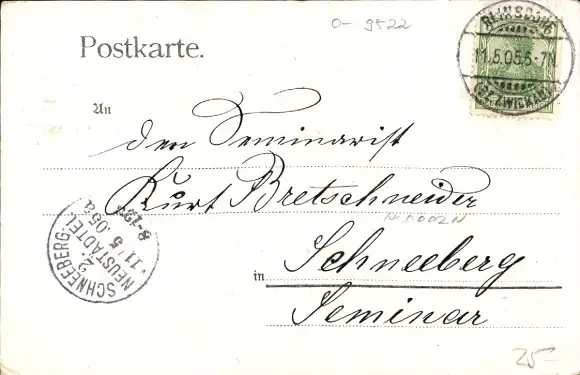 O- 9522
Postkarte.
REINSDORF
11.5.05.6-7N
(BZ. ZWICKAU)
An
den Seminarist
Kurt Bretschneider
SCHNEEBERG-
NEUSTÄDTEL
2.
11/5 05
8-12
in Schneeberg
Seminar
25-